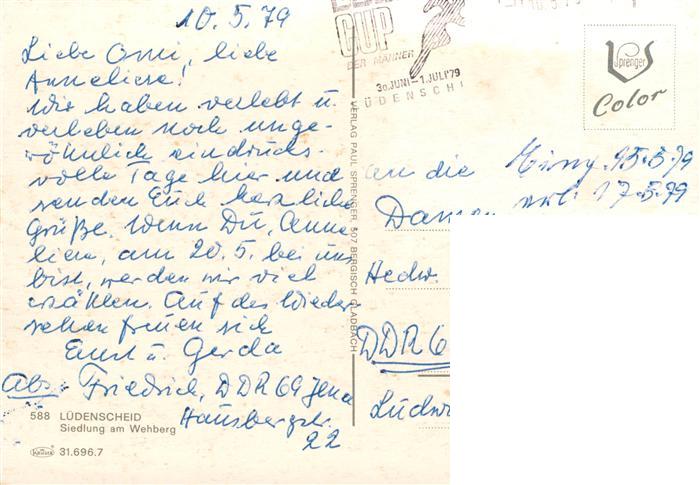 10.5.79
Liebe Omi, liebe
Anneliese!
Wir haben verlebt u.
verleben noch unge-
wöhnlich eindrucks-
volle Tage hier und
senden Euch herzliche
Grüße. Wenn Du, Anne-
lien, am 20.5. bei uns
bist, werden wir viel
erzählen. Auf das Wieder-
sehen freuen sich
Ernst u. Gerda
Abs. Friedrich, DDR 69 Jena
Hausbergstr.
22
588 LÜDENSCHEID
Siedlung am Wehberg
31.696.7
VERLAG PAUL SPRENGER, 507 BERGISCH GLADBACH
CUP
DER MÄNNER
30.JUNI-1.JULI'79
ÜDENSCH
Sprenger
Color
an die
15.5.79
17.5.79
Damen
Hedw.
DDR 6
Ludw